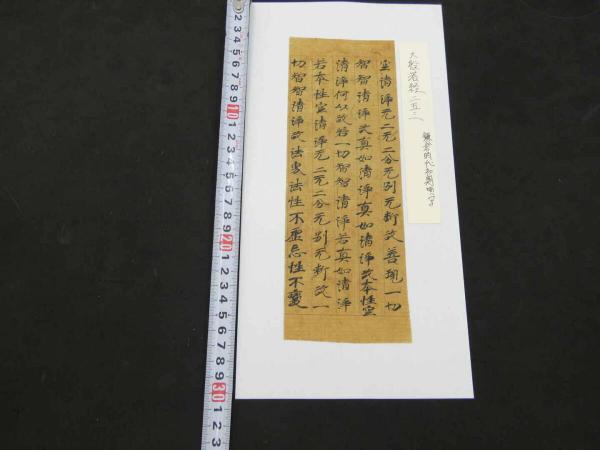 大般若経 二五二
鎌倉時代初期
空清淨无二无二分无別无斷故善現一切
智智清淨故真如清淨真如清淨故本性空
清淨何以故若一切智智清淨若真如清淨
若本性空清淨无二无二分无別无斷故一
切智智清淨故法界法性不虛忘性不變
2 3 4 5 6 7 8 9 10 1 2 3 4 5 6 7 8 9 20 1 2 3 4 5 6 7 8 9 30 1 2 3